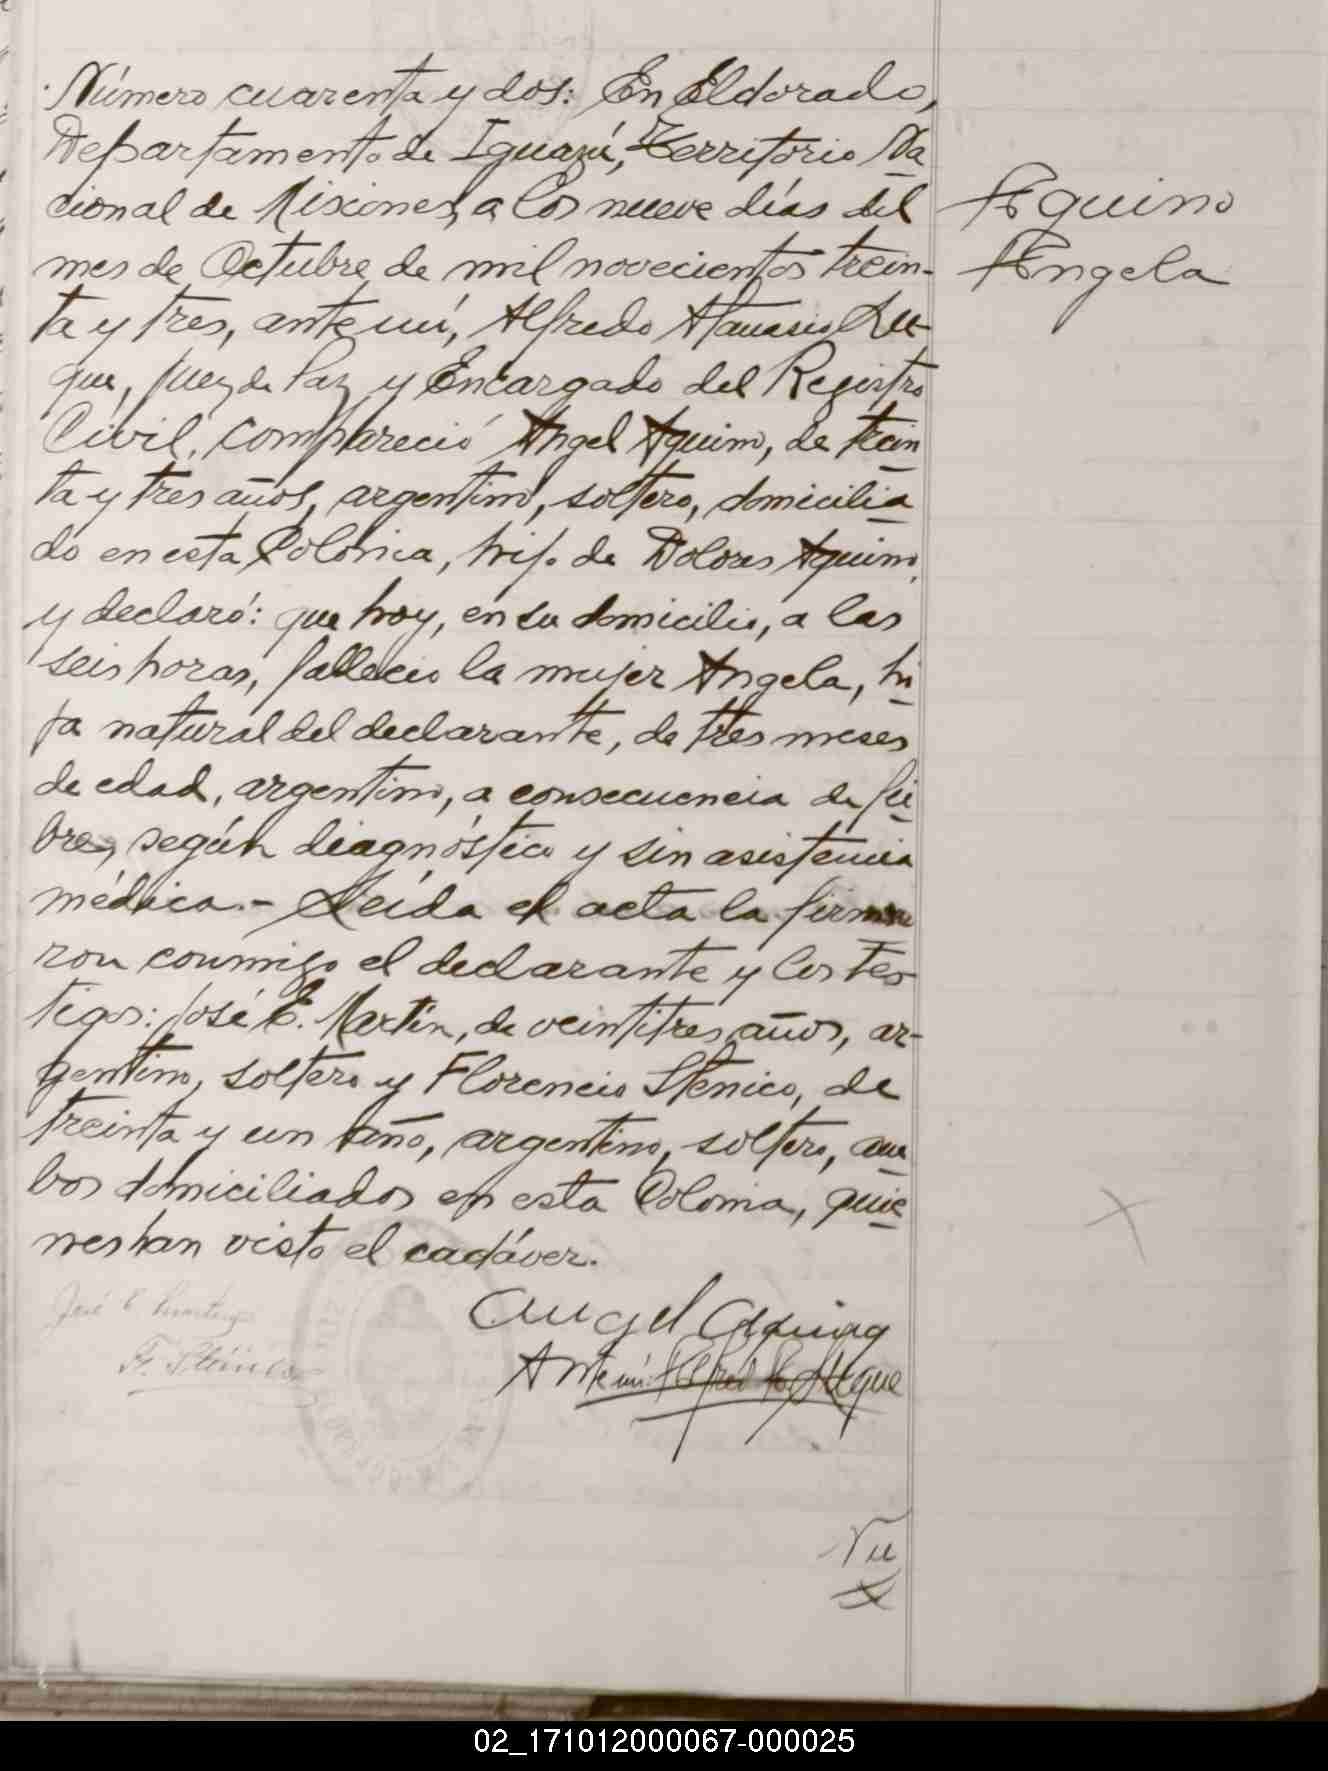 Número cuarenta y dos: En Eldorado,
Departamento de Iguazú, Territorio Na
cional de Misiones, a los nueve días del
mes de Octubre de mil novecientos trein-
ta y tres, ante mí, Alfredo Atanasio Lu-
que, Juez de Paz y Encargado del Registro
Civil, compareció Angel Aquino, de trein
ta y tres años, argentino, soltero, domicilia
do en esta Colonia, hijo de Dolores Aquino,
y declaró: que hoy, en su domicilio, a las
seis horas, falleció la mujer Angela, hi
ja natural del declarante, de tres meses
de edad, argentino, a consecuencia de fie
bre, según diagnóstico y sin asistencia
médica.- Leída el acta la firma
ron conmigo el declarante y los tes-
tigos: José E. Martín, de veintitres años, ar-
gentino, soltero y Florencio Stenico, de
treinta y un año, argentino, soltero, am
bos domiciliados en esta Colonia, quie
nes han visto el cadáver.
Aquino
Angela
José E.
F. Stenico
Angel Aquino
Ante mí: Alfredo A. Luque
02_171012000067-000025